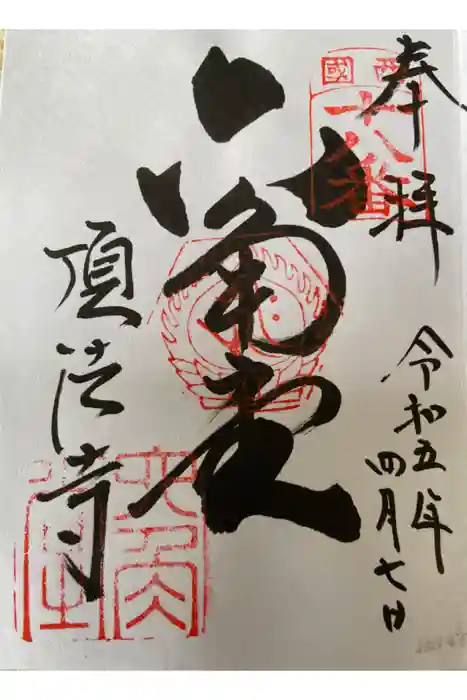 奉拝
令和五年
四月七日
西國
十八番
六角堂
頂法寺